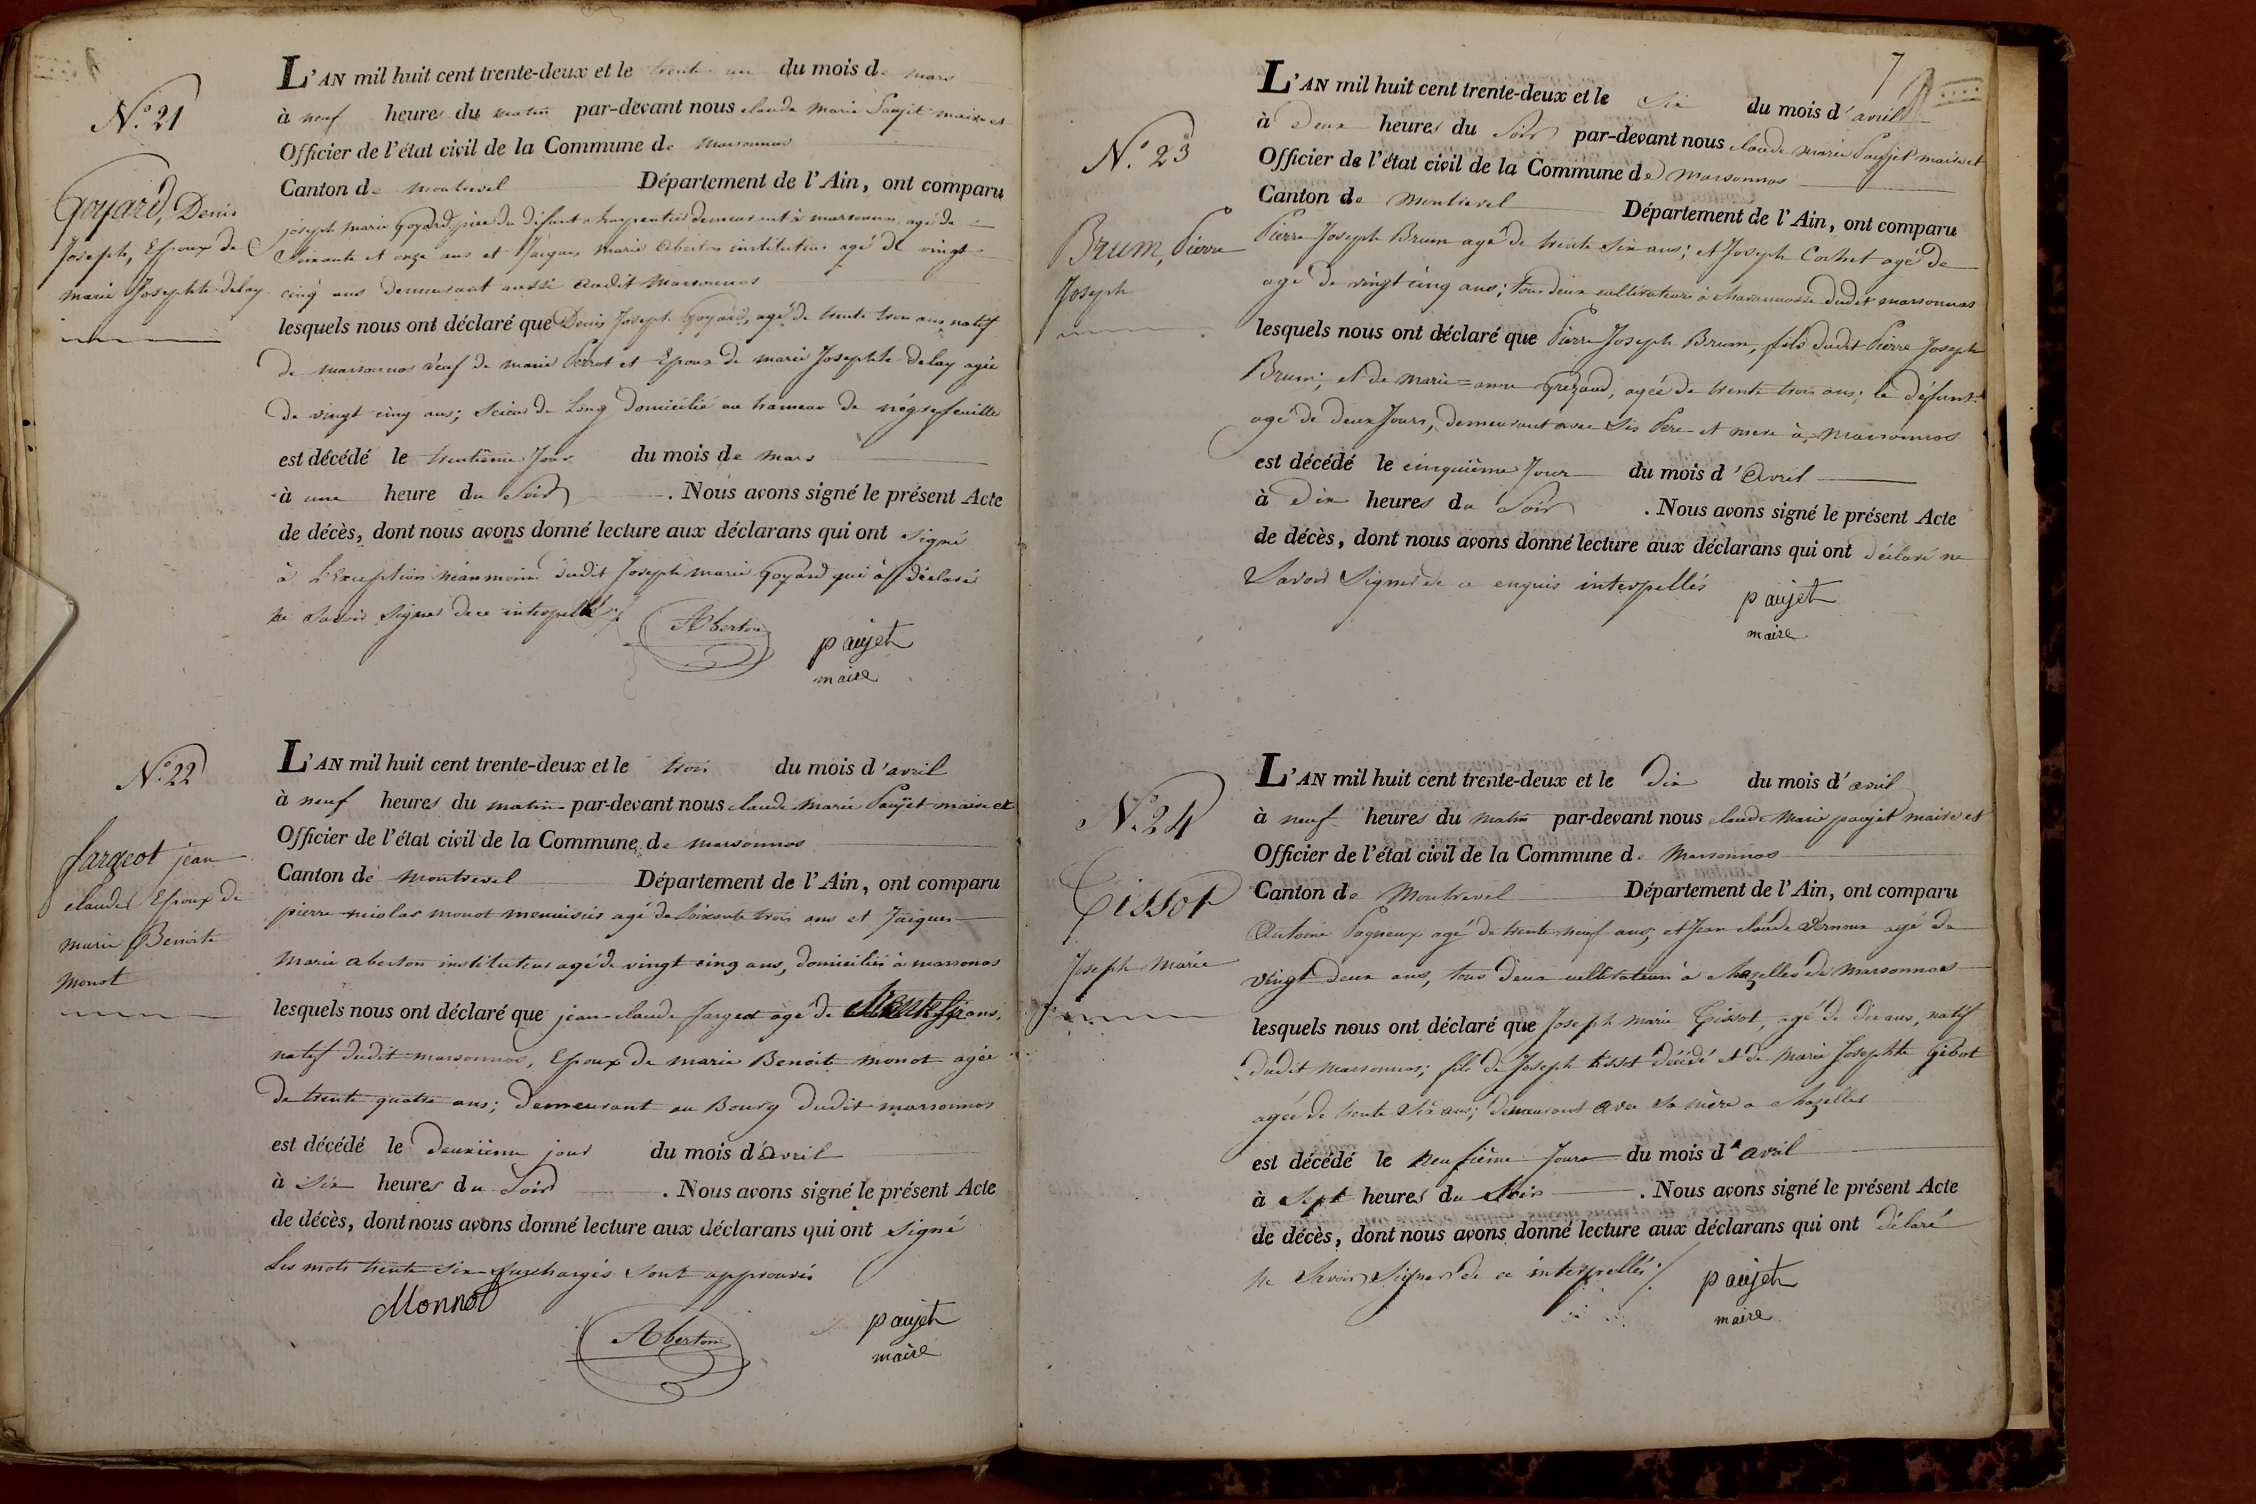 N.º 21
Goyard, Denis
Joseph, Epoux de
marie Josephte delay
L'AN mil huit cent trente-deux et le trente un du mois de mars
à neuf heures du matin par-devant nous claude marie Paujet maire et
Officier de l'état civil de la Commune de marsonnas
Canton de montrevel Département de l'Ain, ont comparu
joseph marie Goyard, père du défunt charpentier demeurant à marsonnas agé de
Soixante et onze ans et Jacques marie Aberton instituteur agé de vingt
cinq ans demeurant aussi audit Marsonnas
lesquels nous ont déclaré que Denis Joseph Goyard, agé de trente trois ans natif
de marsonnas veuf de marie Perrot et Epoux de marie Josephte delay agée
de vingt cinq ans; Scieur de Long domicilié au hameau de négrefeuille
est décédé le trentième Jour du mois de mars
à une heure du Soir . Nous avons signé le présent Acte
de décès, dont nous avons donné lecture aux déclarans qui ont signé
à L'Exception néanmoins dudit Joseph marie Goyard qui a déclaré
ne savoir signer de ce interpellé
Aberton
paujet
maire
N.º 22
fargeot jean
claude Epoux de
marie Benoite
monot
L'AN mil huit cent trente-deux et le trois du mois d'avril
à neuf heures du matin par-devant nous claude marie Paujet maire et
Officier de l'état civil de la Commune de marsonnas
Canton de montrevel Département de l'Ain, ont comparu
pierre nicolas monot menuisier agé de Soixante trois ans et Jacques
Marie aberton instituteur agé de vingt cinq ans, domiciliés à marsonas
lesquels nous ont déclaré que jean claude fargeot agé de trente six ans,
natif dudit marsonnas, Epoux de marie Benoite monot agée
de trente quatre ans; demeurant au Bourg dudit marsonnas
est décédé le deuxième jour du mois d'avril
à Six heures du Soir . Nous avons signé le présent Acte
de décès, dont nous avons donné lecture aux déclarans qui ont signé
Les mots trente six surchargés sont approuvés
Monnot
Aberton
paujet
maire
7
N.º 23
Brum, Pierre
Joseph
L'AN mil huit cent trente-deux et le Six du mois d'avril
à Deux heures du Soir par-devant nous claude marie Paujet maire et
Officier de l'état civil de la Commune de marsonnas
Canton de Montrevel Département de l'Ain, ont comparu
Pierre Joseph Brum agé de trente Six ans; et Joseph Cochet agé de
agé de vingt cinq ans; tous deux cultivateurs à dudit marsonnas
lesquels nous ont déclaré que Pierre Joseph Brum, fils dudit Pierre Joseph
Brum; et de marie=anne Grezaud, agée de trente trois ans; le défunt
agé de deux Jours, demeurant avec Ses Pere et mere à Marsonnas
est décédé le cinquième Jour du mois d'Avril
à Dix heures du Soir . Nous avons signé le présent Acte
de décès, dont nous avons donné lecture aux déclarans qui ont déclaré ne
Savoir Signer de ce enquis interpellés
paujet
maire
N.º 24
Tissot
Joseph Marie
L'AN mil huit cent trente-deux et le dix du mois d'avril
à neuf heures du matin par-devant nous claude Marie paujet maire et
Officier de l'état civil de la Commune de Marsonnas
Canton de Montrevel Département de l'Ain, ont comparu
Antoine Pagneux agé de trente neuf ans, et Jean claude agé de
vingt deux ans, tous deux cultivateurs à chazelles de Marsonnas
lesquels nous ont déclaré que Joseph Marie Tissot, agé de dix ans, natif
dudit Marsonnas; fils de Joseph tissot décédé et de Marie Josephte Gibot
agée de trente Six ans; demeurant avec sa mère a chazelles
est décédé le neufième Jour du mois d'avril
à Sept heures du Soir . Nous avons signé le présent Acte
de décès, dont nous avons donné lecture aux déclarans qui ont déclaré
ne Savoir Signer de ce interpellés
paujet
maire